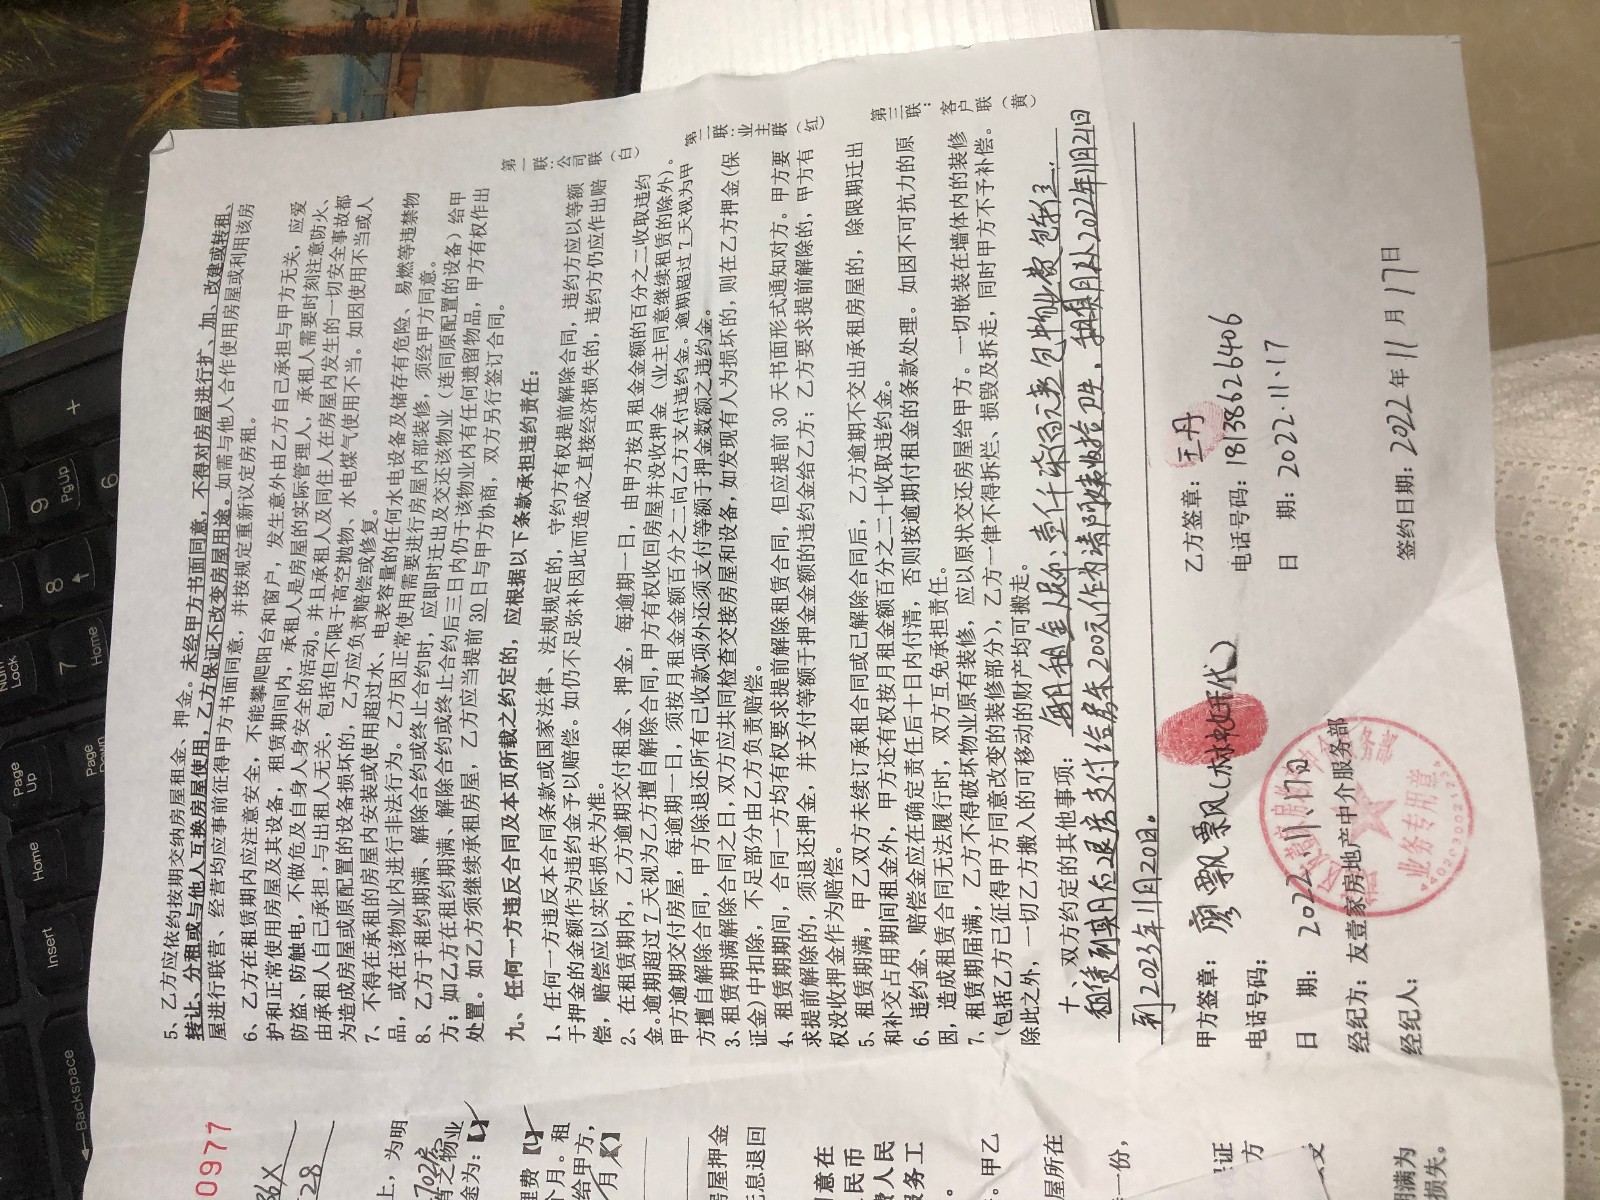 5、乙方应依约按期交纳房屋租金、押金。未经甲方书面同意，不得对房屋进行扩、加、改建或转租、
转让、分租或与他人互换房屋使用，乙方保证不改变房屋用途。如需与他人合作使用房屋或利用该房
屋进行联营、经营均应事前征得甲方书面同意，并按规定重新议定房租。
6、乙方在租赁期内应注意安全，不能攀爬阳台和窗户，发生意外由乙方自己承担与甲方无关，应爱
护和正常使用房屋及其设备，租赁期间内，承租人是房屋的实际管理人，承租人需要时刻注意防火、
防盗、防触电，不做危及自身人身安全的活动。并且承租人及同住人在房屋内发生的一切安全事故都
由承租人自己承担，与出租人无关，包括但不限于高空抛物、水电煤气使用不当。如因使用不当或人
为造成房屋或原配置的设备损坏的，乙方应负责赔偿或修复。
7、不得在承租的房屋内安装或使用超过水、电表容量的任何水电设备及储存有危险、易燃等违禁物
品，或在该物业内进行非法行为。乙方因正常使用需要进行房屋内部装修，须经甲方同意。
8、乙方于租约期满、解除合约或终止合约时，应即时迁出及交还该物业（连同原配置的设备）给甲
方；如乙方在租约期满、解除合约或终止合约后三日内仍于该物业内有任何遗留物品，甲方有权作出
处置。如乙方须继续承租房屋，乙方应当提前30日与甲方协商，双方另行签订合同。
九、任何一方违反合同及本页所载之约定的，应根据以下条款承担违约责任：
1、任何一方违反本合同条款或国家法律、法规规定的，守约方有权提前解除合同，违约方应以等额
于押金的金额作为违约金予以赔偿。如仍不足弥补因此而造成之直接经济损失的，违约方仍应作出赔
偿，赔偿应以实际损失为准。
2、在租赁期内，乙方逾期交付租金、押金，每逾期一日，由甲方按月租金金额的百分之二收取违约
金。逾期超过7天视为乙方擅自解除合同，甲方有权收回房屋并没收押金（业主同意继续租赁的除外）。
甲方逾期交付房屋，每逾期一日，须按月租金金额百分之二向乙方支付违约金。逾期超过7天视为甲
方擅自解除合同，甲方除退还所有已收款项外还须支付等额于押金数额之违约金。
3、租赁期满解除合同之日，双方应共同检查交接房屋和设备，如发现有人为损坏的，则在乙方押金（保
证金）中扣除，不足部分由乙方负责赔偿。
4、租赁期期间，合同一方均有权要求提前解除租赁合同，但应提前30天书面形式通知对方。甲方要
求提前解除的，须退还押金，并支付等额于押金金额的违约金给乙方；乙方要求提前解除的，甲方有
权没收押金作为赔偿。
5、租赁期满，甲乙双方未续订承租合同或已解除合同后，乙方逾期不交出承租房屋的，除限期迁出
和补交占用期间租金外，甲方还有权按月租金额百分之二十收取违约金。
6、违约金、赔偿金应在确定责任后十日内付清，否则按逾期付租金的条款处理。如因不可抗力的原
因，造成租赁合同无法履行时，双方互免承担责任。
7、租赁期届满，乙方不得破坏物业原有装修，应以原状交还房屋给甲方。一切嵌装在墙体内的装修
（包括乙方已征得甲方同意改变的装修部分），乙方一律不得拆烂、损毁及拆走，同时甲方不予补偿。
除此之外，一切乙方搬入的可移动的财产均可搬走。
第一联：公司联（白）
第二联：业主联（红）
第三联：客户联（黄）
十、双方约定的其他事项：每月租金人民币：壹仟柒佰元素包物业费包
租赁到期后退房支付给房东200元作为请阿姨收拾卫生，租期从2022年11月21日
到2023年11月20日。
甲方签章：廖飘飘（林 代）
乙方签章：王丹
电话号码：
电话号码：18138626406
日 期：2022.11.17日
日 期：2022.11.17
经纪方：友壹家房地产中介服务部
经纪人：
签约日期：2022年11月17日
业务专用章
0977
28
上，为明
702房
之物业
途为：【
理费【
个月。租
给甲方，
月
房屋押金
无息退回
意在
民币
费人民
服务工
。甲乙
屋所在
一份，
证
方
期满为
损失。
Backspace
Insert
Home
Page Up
Page Down
Num Lock
7 Home
8
9 PgUp
6
+